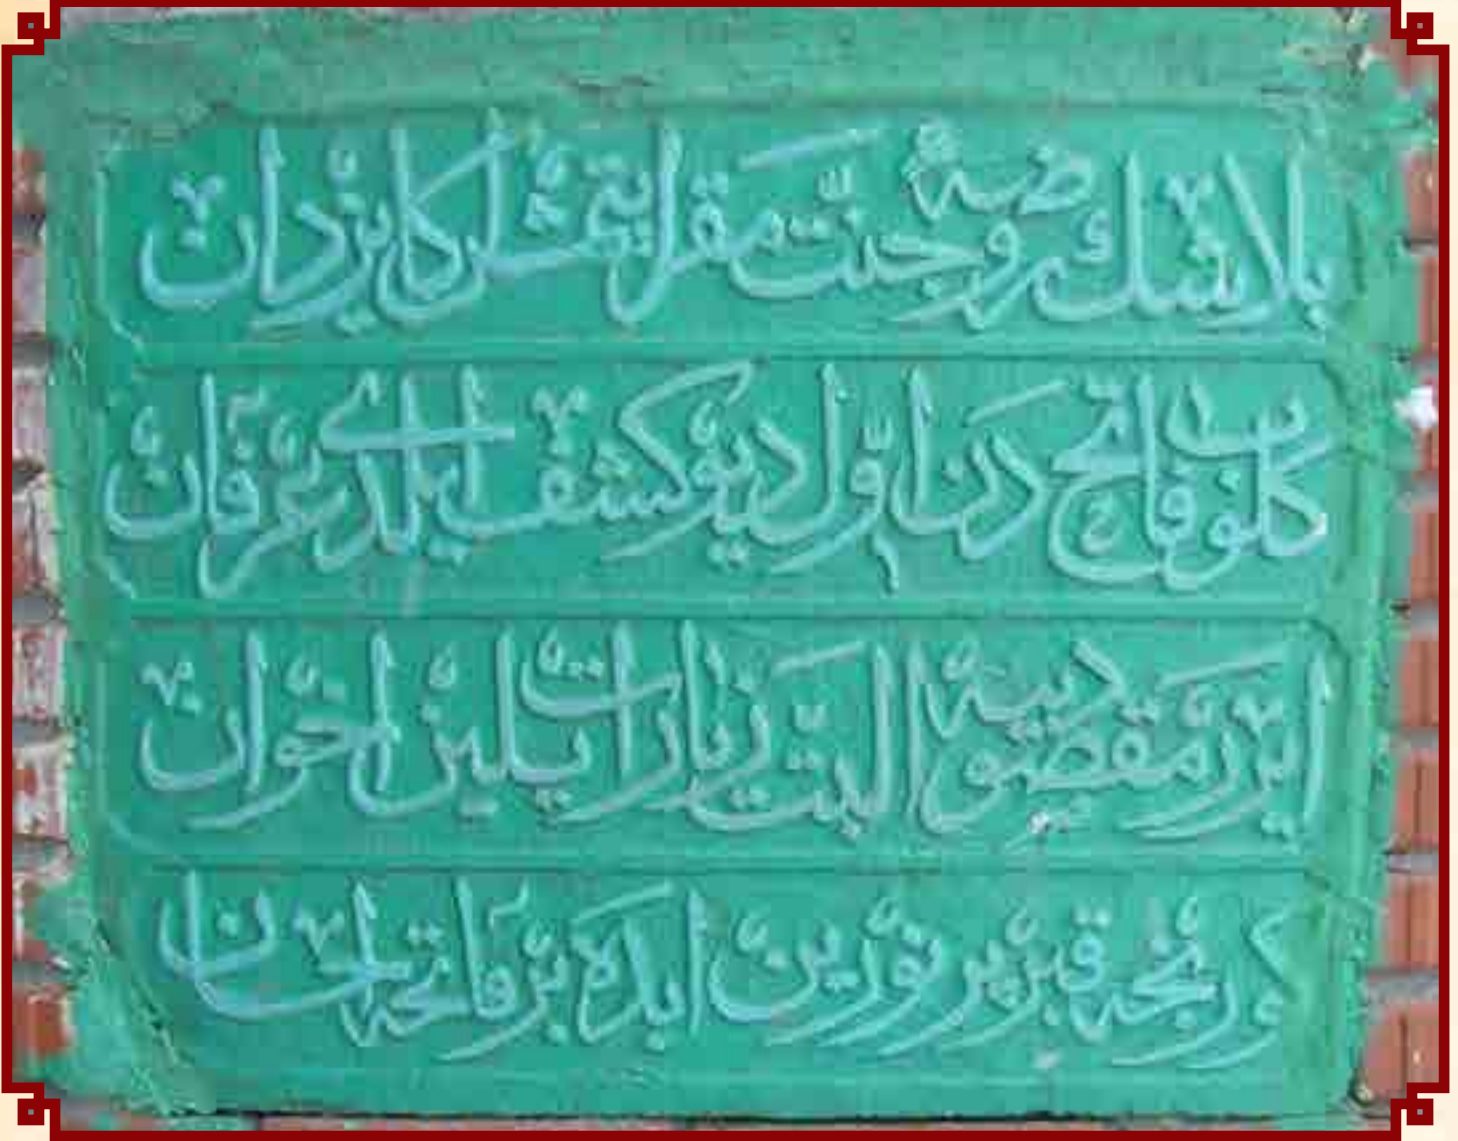 بلاشك روضهٔ جنت مقر ايتمش لركا يزدان
كلوب فاتح درنا اول ديو كشف ايلدى عرفان
ايرر مقصودينه البت زيارات ايلين اخوان
كورنجه قبر پر نورين ايده بر فاتحه احسان